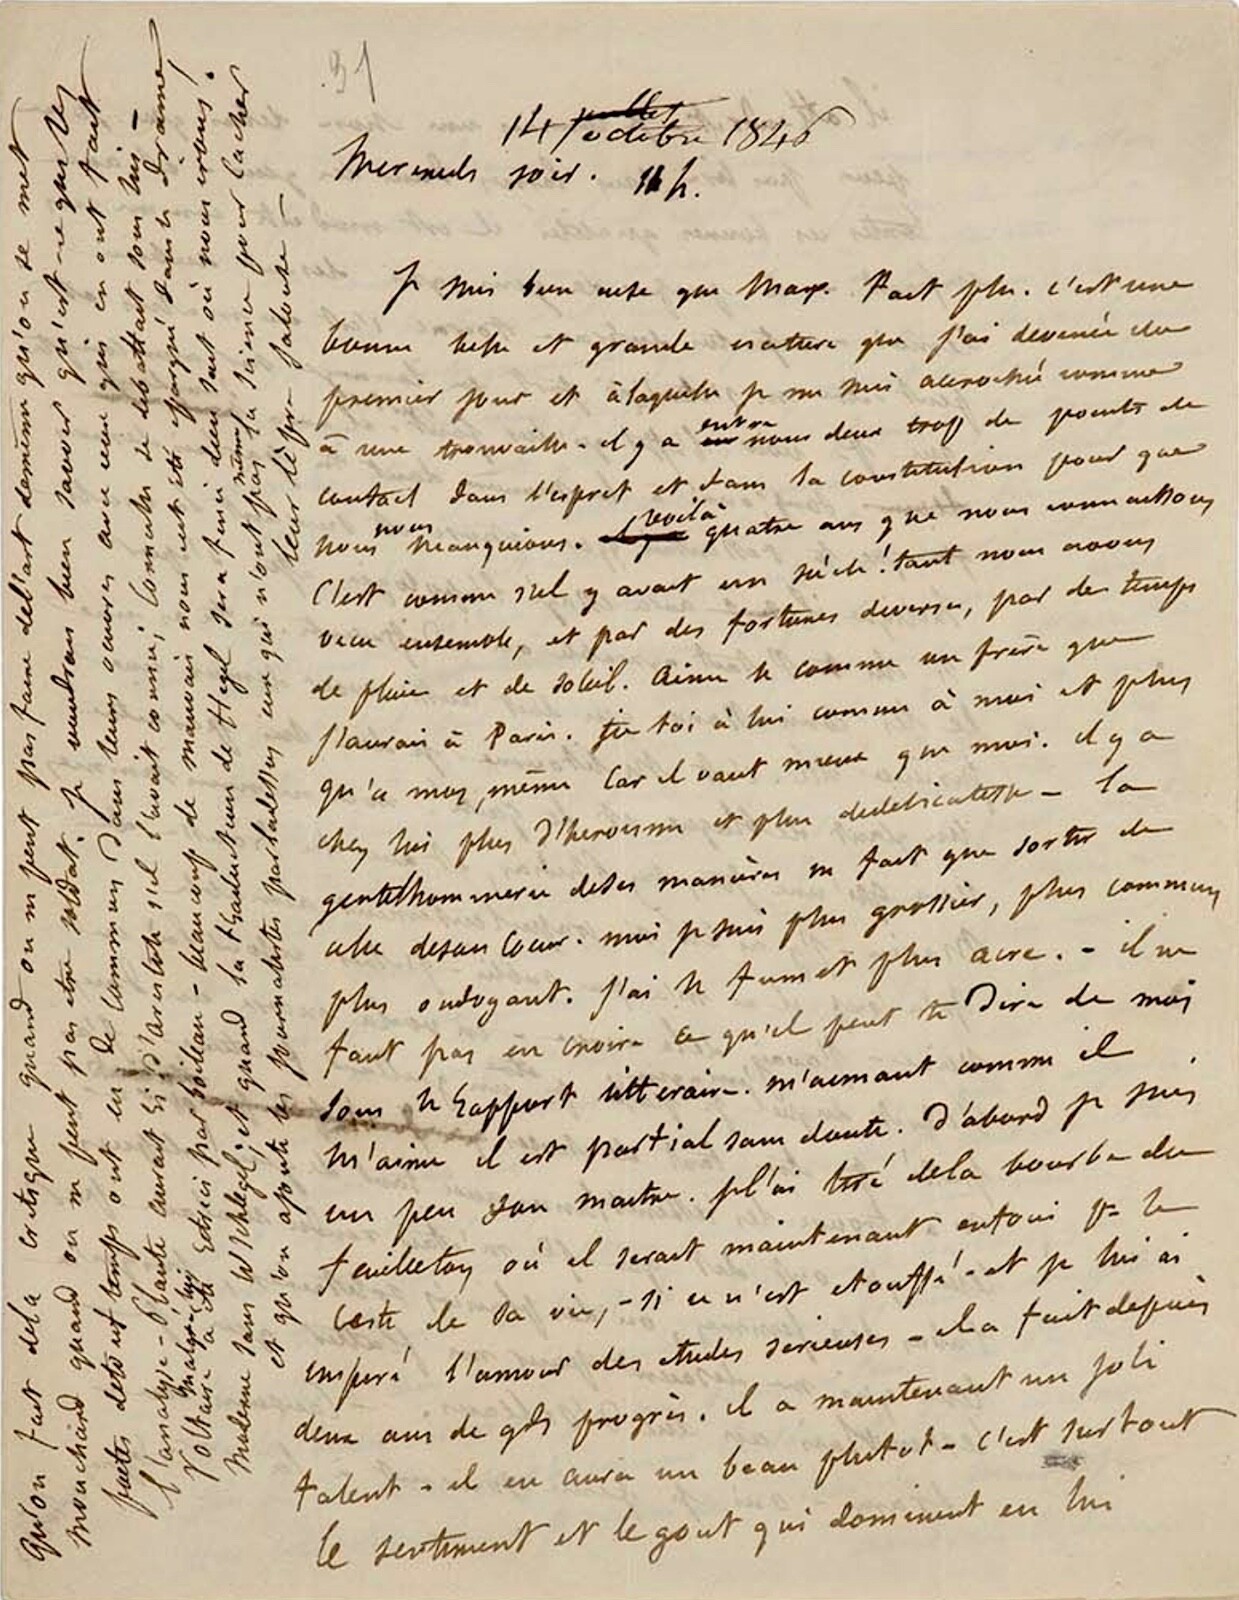 31
14 juillet octobre 1846
Mercredi soir. 11 h.
Je suis bien aise que Max. t'ait plu. c'est une
bonne belle et grande nature que j'ai devinée du
premier jour et à laquelle je me suis accroché comme
à une trouvaille. il y a entre nous deux trop de points de
contact dans l'esprit et dans la constitution pour que
nous nous manquions. voilà quatre ans que nous nous connaissons
C'est comme s'il y avait un siècle! tant nous avons
vecu ensemble, et par des fortunes diverses, par des temps
de pluie et de soleil. aime le comme un frère que
j'aurais à Paris. fie toi à lui comme à moi et plus
qu'à moi même car il vaut mieux que moi. il y a
chez lui plus d'heroisme et plus de delicatesse – la
gentilhommerie de ses manières ne fait que sortir de
celle de son Cœur. moi je suis plus grossier, plus commun,
plus ondoyant. j'ai le fumet plus acre. – il ne
faut pas en croire ce qu'il peut te dire de moi
sous le rapport litteraire. m'aimant comme il
m'aime il est partial sans doute. D'abord je suis
un peu son maitre. je l'ai tiré de la bourbe du
feuilleton où il serait maintenant enfoui p. le
reste de sa vie, – si ce n'est etouffé – et je lui ai
inspiré l'amour des etudes serieuses – il a fait depuis
deux ans de gds progrès. il a maintenant un joli
talent – il en aura un beau plutot – c'est surtout
le sentiment et le gout qui dominent en lui
Qu'on fait de la critique quand on ne peut pas faire de l'art de même qu'on se met
mouchard quand on ne peut pas etre soldat. je voudrais bien savoir qu'est-ce que les
poetes de tout temps ont eu de commun dans leurs œuvres avec ceux qui en ont fait
l'analyse – Plaute aurait ri d'aristote s'il l'avait connu; Corneille se debattait sous lui –
Voltaire malgré lui a été retreci par boileau – beaucoup de mauvais nous eut été epargné dans le drame
moderne sans W Schlegel, et quand la traduction de Hegel sera finie dieu sait où nous irons!
et qu'on ajoute les journalistes par là dessus eux qui n'ont pas même la science pour cacher
leur lèpre jalouse –